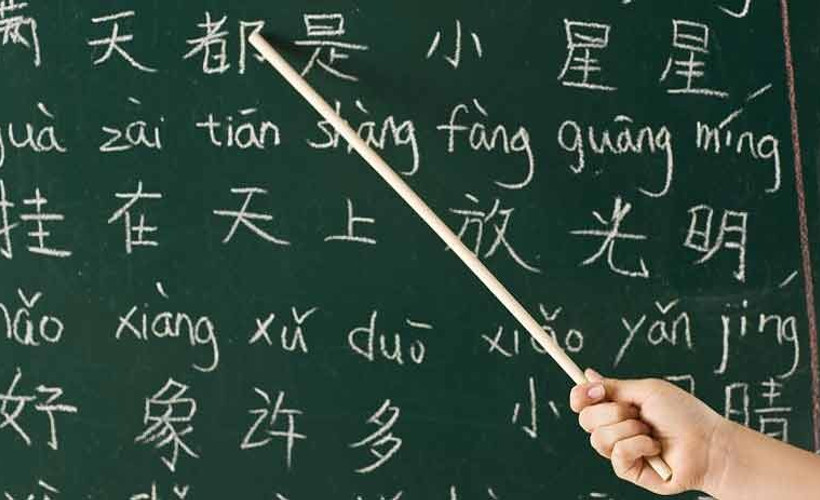 满 天 都 是 小 星 星
uà zài tiān shàng fàng guāng míng
挂 在 天 上 放 光 明
hǎo xiàng xǔ duō xiǎo yǎn jíng
好 象 许 多 小 晴